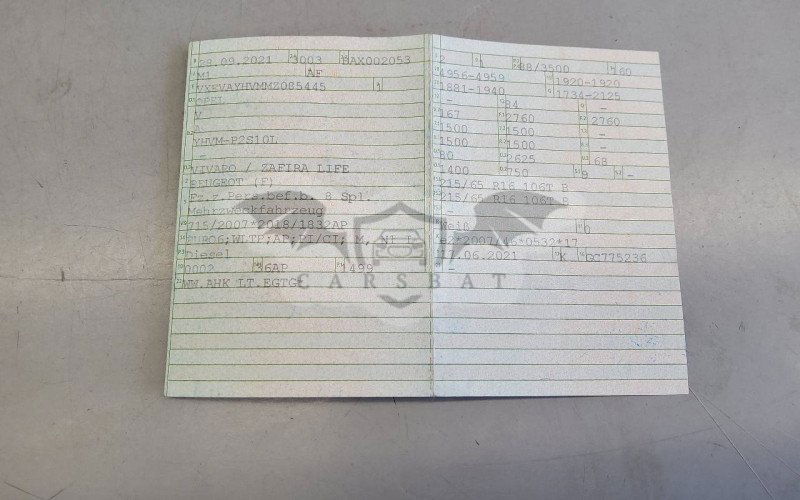 28.09.2021 3003 BAX002053
M1 AF
VXEVAYHVMMZ085445 1
OPEL
V
A
YHVM-P2S10L
-
VIVARO / ZAFIRA LIFE
PEUGEOT (F)
Fz.z.Pers.bef.b. 8 Spl.
Mehrzweckfahrzeug
715/2007*2018/1832AP
EURO6;WLTP;AP;PI/CI; M, N1 I
Diesel
0002 36AP 1499
WW.AHK LT.EGTG*
2 1 88/3500 160
4956-4959 1920-1920
1881-1940 1734-2125
- 84 -
167 2760 2760
1500 1500 -
1500 1500 -
80 2625 68
1400 750 9 -
215/65 R16 106T B
215/65 R16 106T B
-
Weiß 0
e2*2007/46*0532*17
17.06.2021 K GC775236
-
CARSBAT